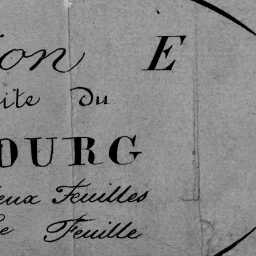 ion E
ite du
OURG
eux Feuilles
e Feuille